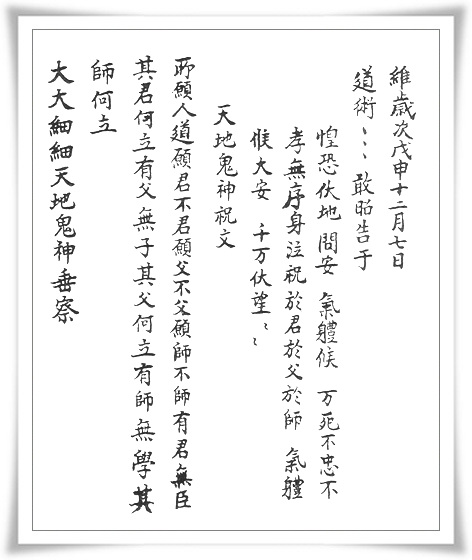 維歲次戊申十二月七日
道術〻〻〻敢昭告于
惶恐伏地問安 氣軆候 万死不忠不
孝無序身泣祝於君於父於師 氣軆
候大安 千万伏望〻〻
天地鬼神祝文
所願人道願君不君願父不父願師不師有君無臣
其君何立有父無子其父何立有師無學其
師何立
大大細細天地鬼神垂察